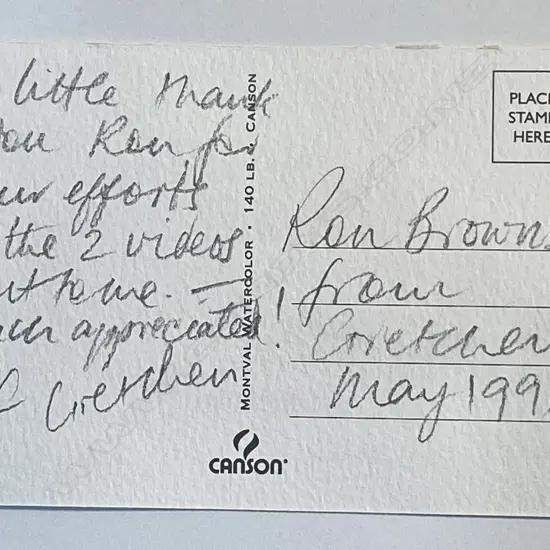 little thank
you Ron for
our efforts
the 2 videos
to me. —
appreciated!
Gretchen
MONTVAL WATERCOLOR • 140 LB. • CANSON
CANSON
PLACE
STAMP
HERE
Ron Brown
from
Gretchen
May 199